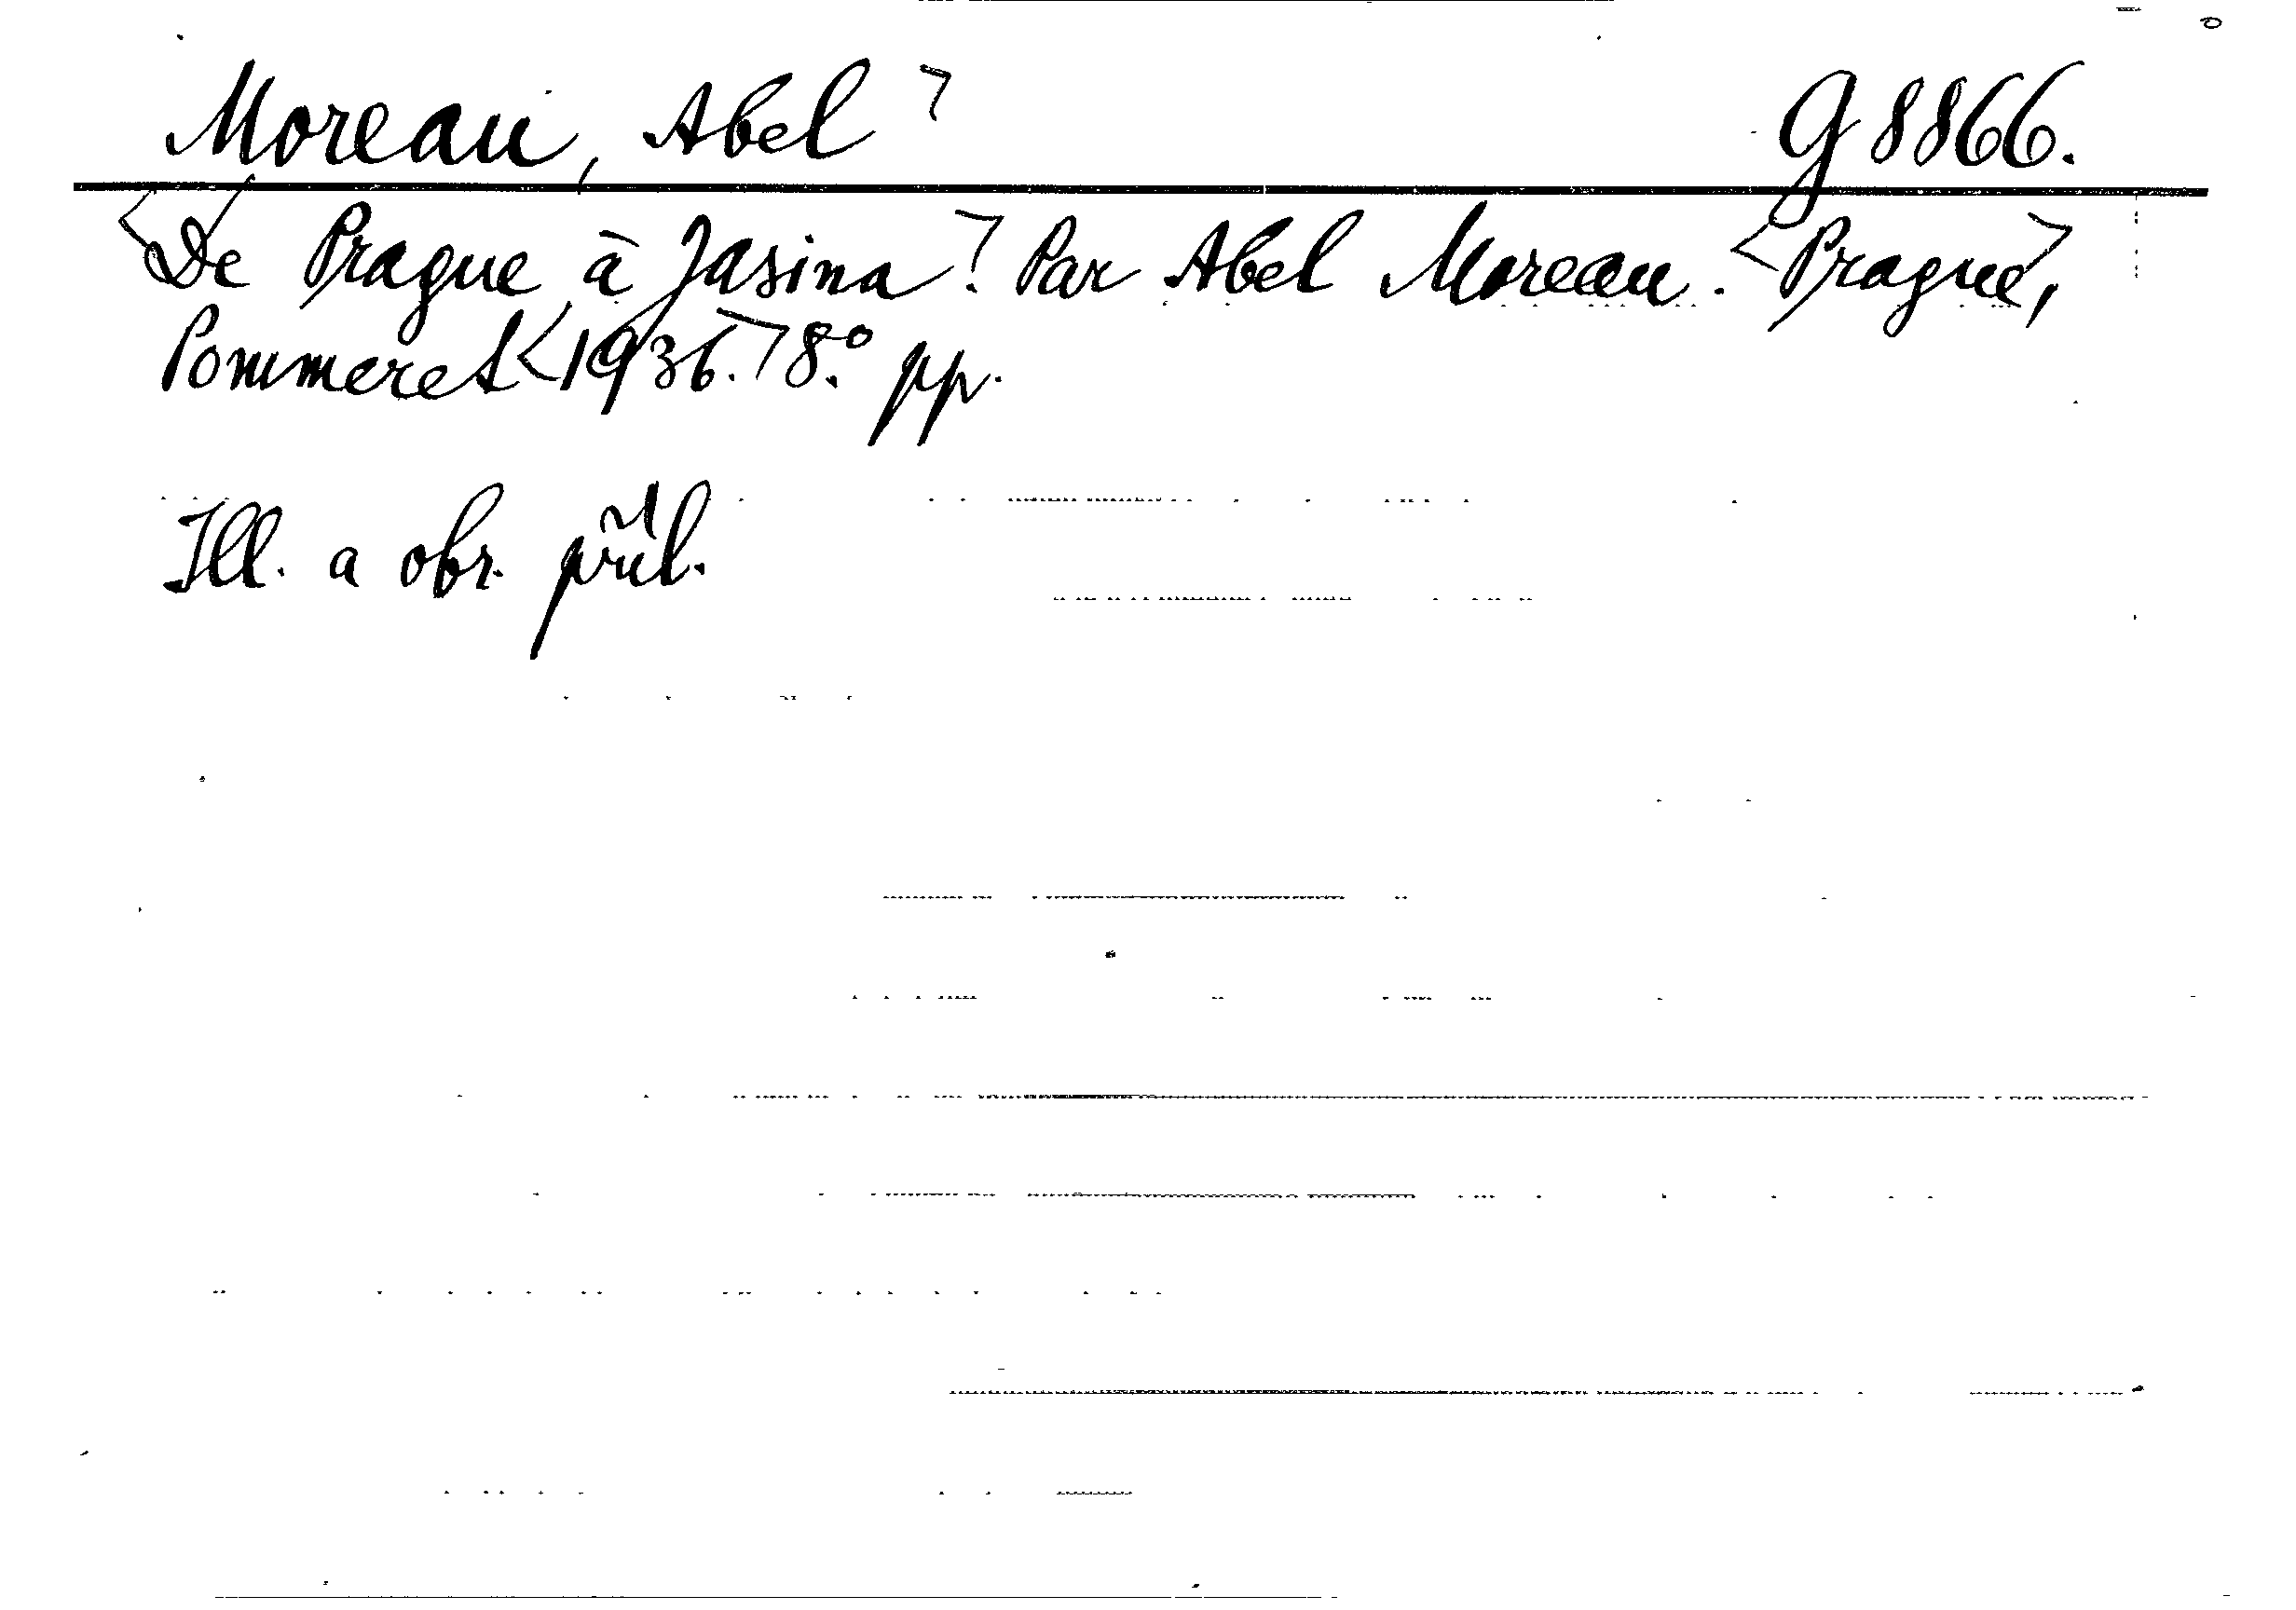 Moreau, Abel G 8866.
De Prague à Jasina. Par Abel Moreau. Prague,
Pommeret 1936. 8.° pp.
Ill. a obr. příl.